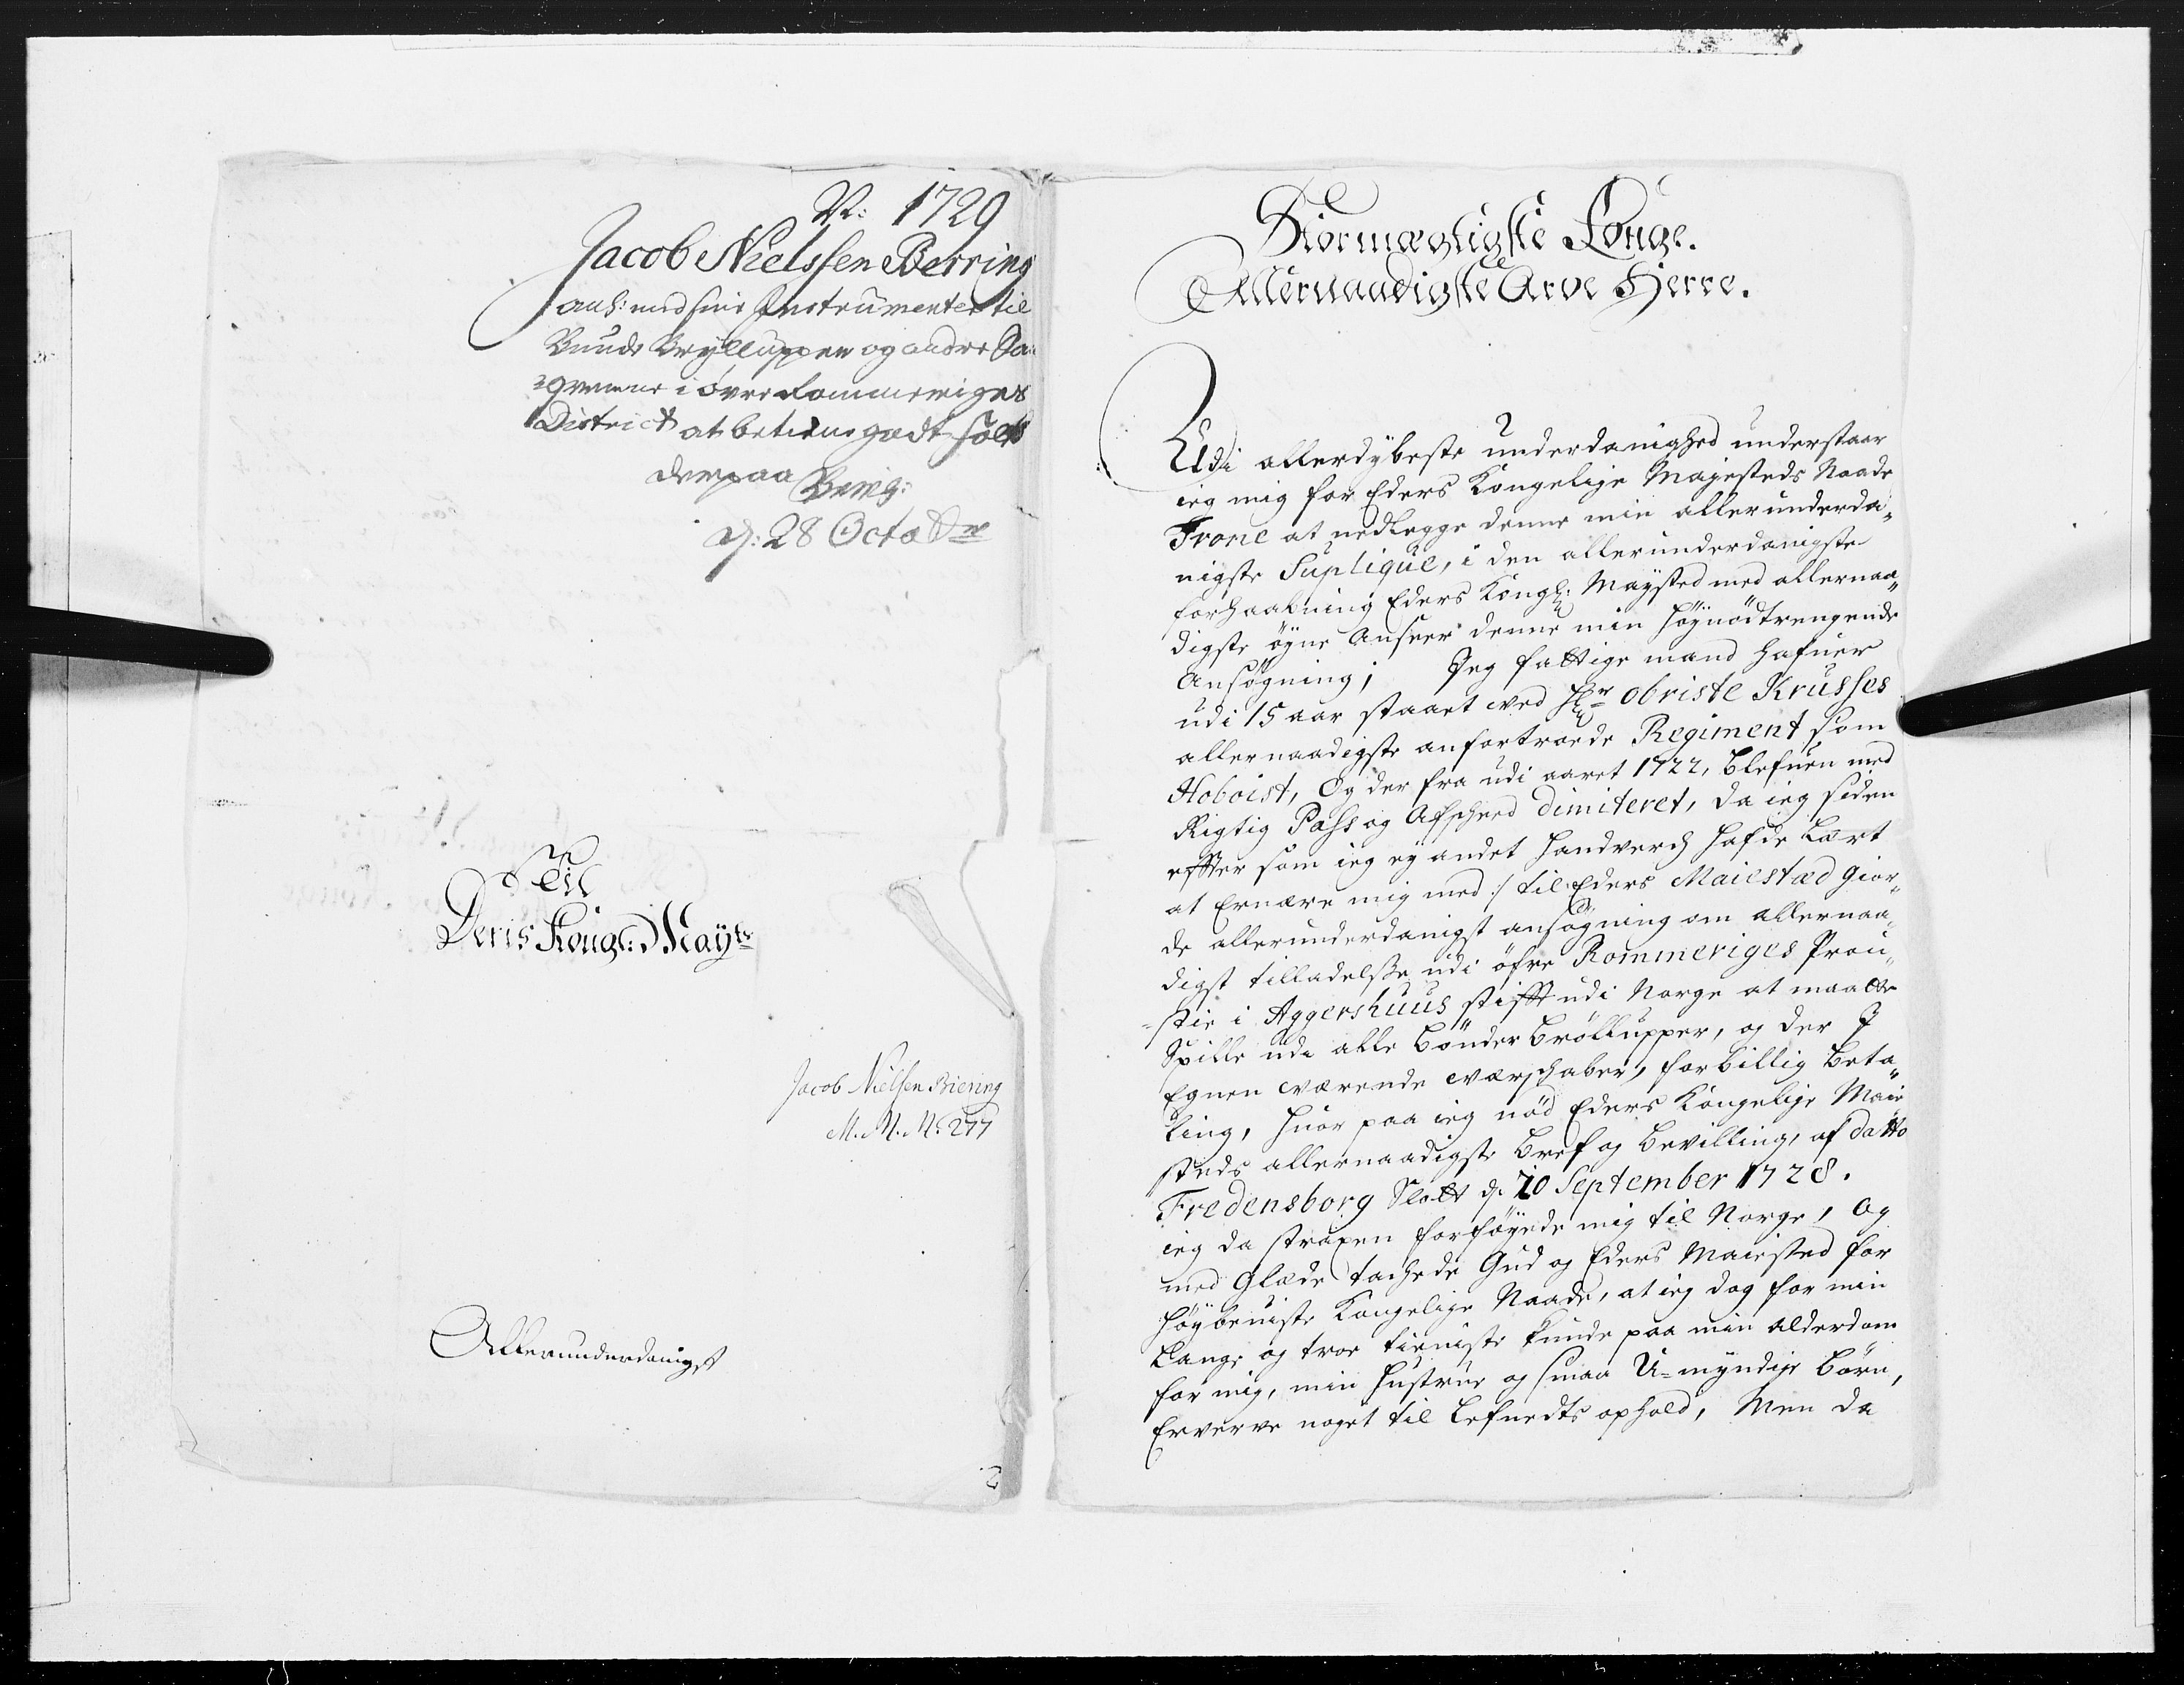 N: 1729
Jacob Nielssen Berring
anh: med sine Instrumenter til
Bunde Brylluppen og andre Sa-
=gvemme i övre Rommeriges
District at betiene godt folk
derpaa Bevig:
d: 28 Octobr
Til
Deris Kongl: Mayts
Jacob Nielsen Biering
M. M. N: 277
Allerunderdanigst
Stormægtigste Konge.
Allernaadigste Arve Herre.
Udi allerdybeste underdanighed understaar
ieg mig for Eders Kongelige Mayesteds Naade
Trone at nedlegge denne min allerunderda„
nigste Suplique, i den allerunderdanigste
forhaabning Eders Kongl: Maysted med allernaa„
digste öyne Anseer denne min höynödtrengende
Ansögning; Jeg fattige mand hafuer
udi 15 aar staaet ved Hr obriste Krusses
allernaadigste anfortroede Regiment som
Hoboist, Og der fra udi aaret 1722, blefuen med
Rigtig Pass og Afskeed dimiteret, da ieg siden
effter som ieg ey andet handverch hafde Lært
at Ernære mig med :/ til Eders Maiestæd gior„
de allerunderdanigst ansögning om allernaa„
digst tilladelsse udi öfre Rommeriges Prou„
=stie i Aggershuus stifft udi Norge at maatte
Spille udi alle bönder bröllupper, og der J
Egnen værende værschaber, for billig beta„
ling, huor paa ieg nöd Eders Kongelige Maie
steds allernaadigste bref og bevilling, af datto
Fredensborg Slott d. 20 September 1728.
ieg da straxen forföyede mig til Norge, og
med Glæde tachede Gud og Eders Maiested for
höybeuiste Kongelige Naade, at ieg dog for min
Lange og troe tieniste kunde paa min alderdom
for mig, min hustrue og smaa U=myndige börn,
Erverve noget til Lefuedts ophold, Men da